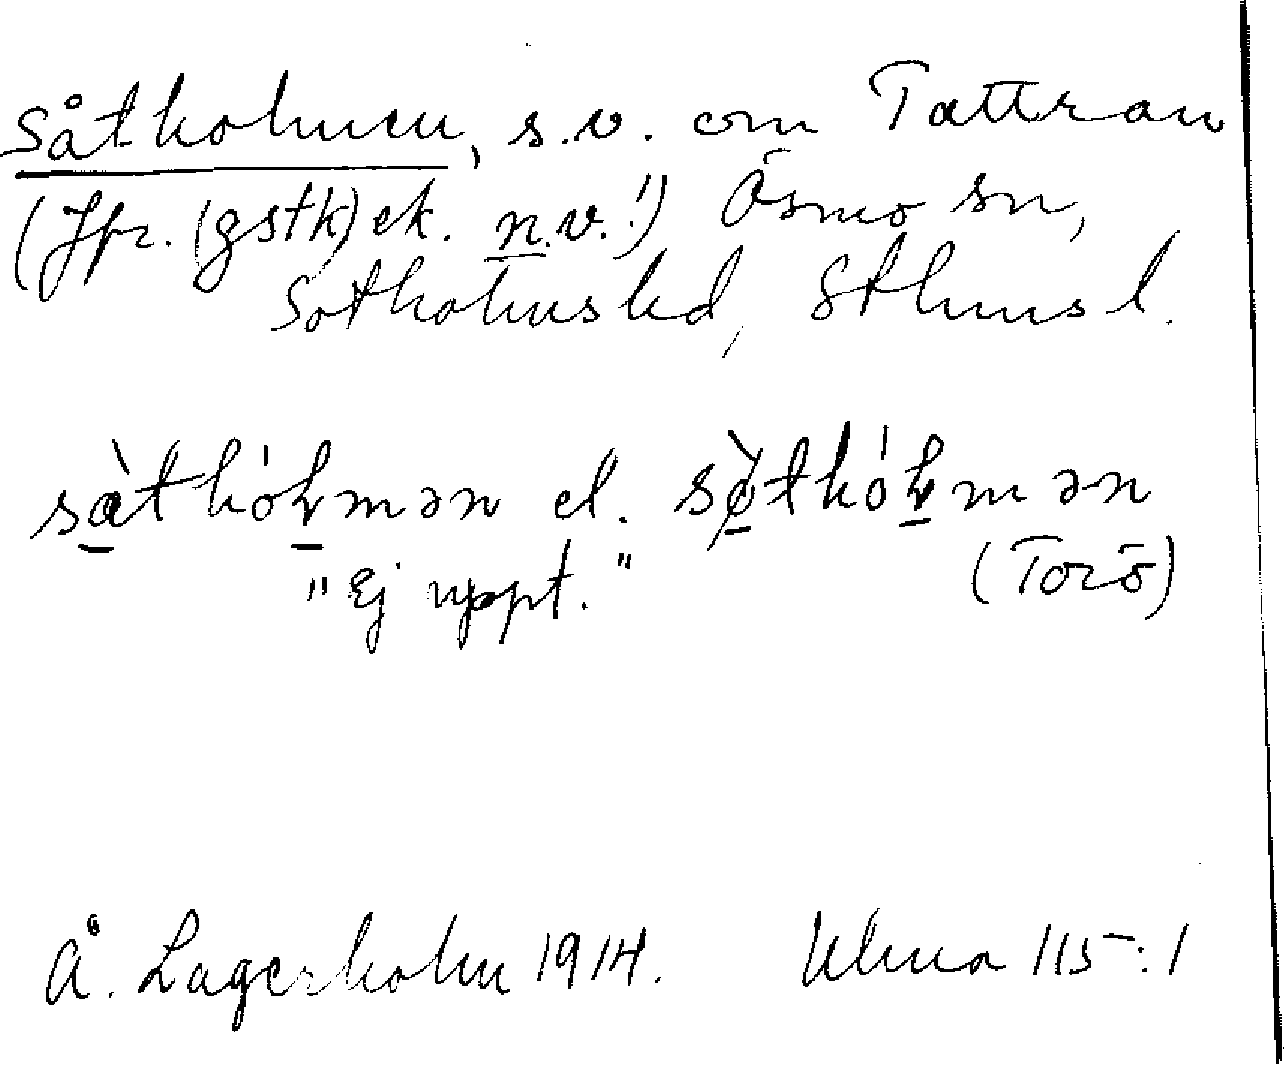 Såtholmen, s.v. om Tättran
(Jfr. (gstk) ek. n.v.!) Ösmo sn,
Sotholms hd, Sthms l.
sàthóļmən el. sòthóļmən
"Ej uppt." (Torö)
Å. Lagerholm 1914. Ulma 115:1